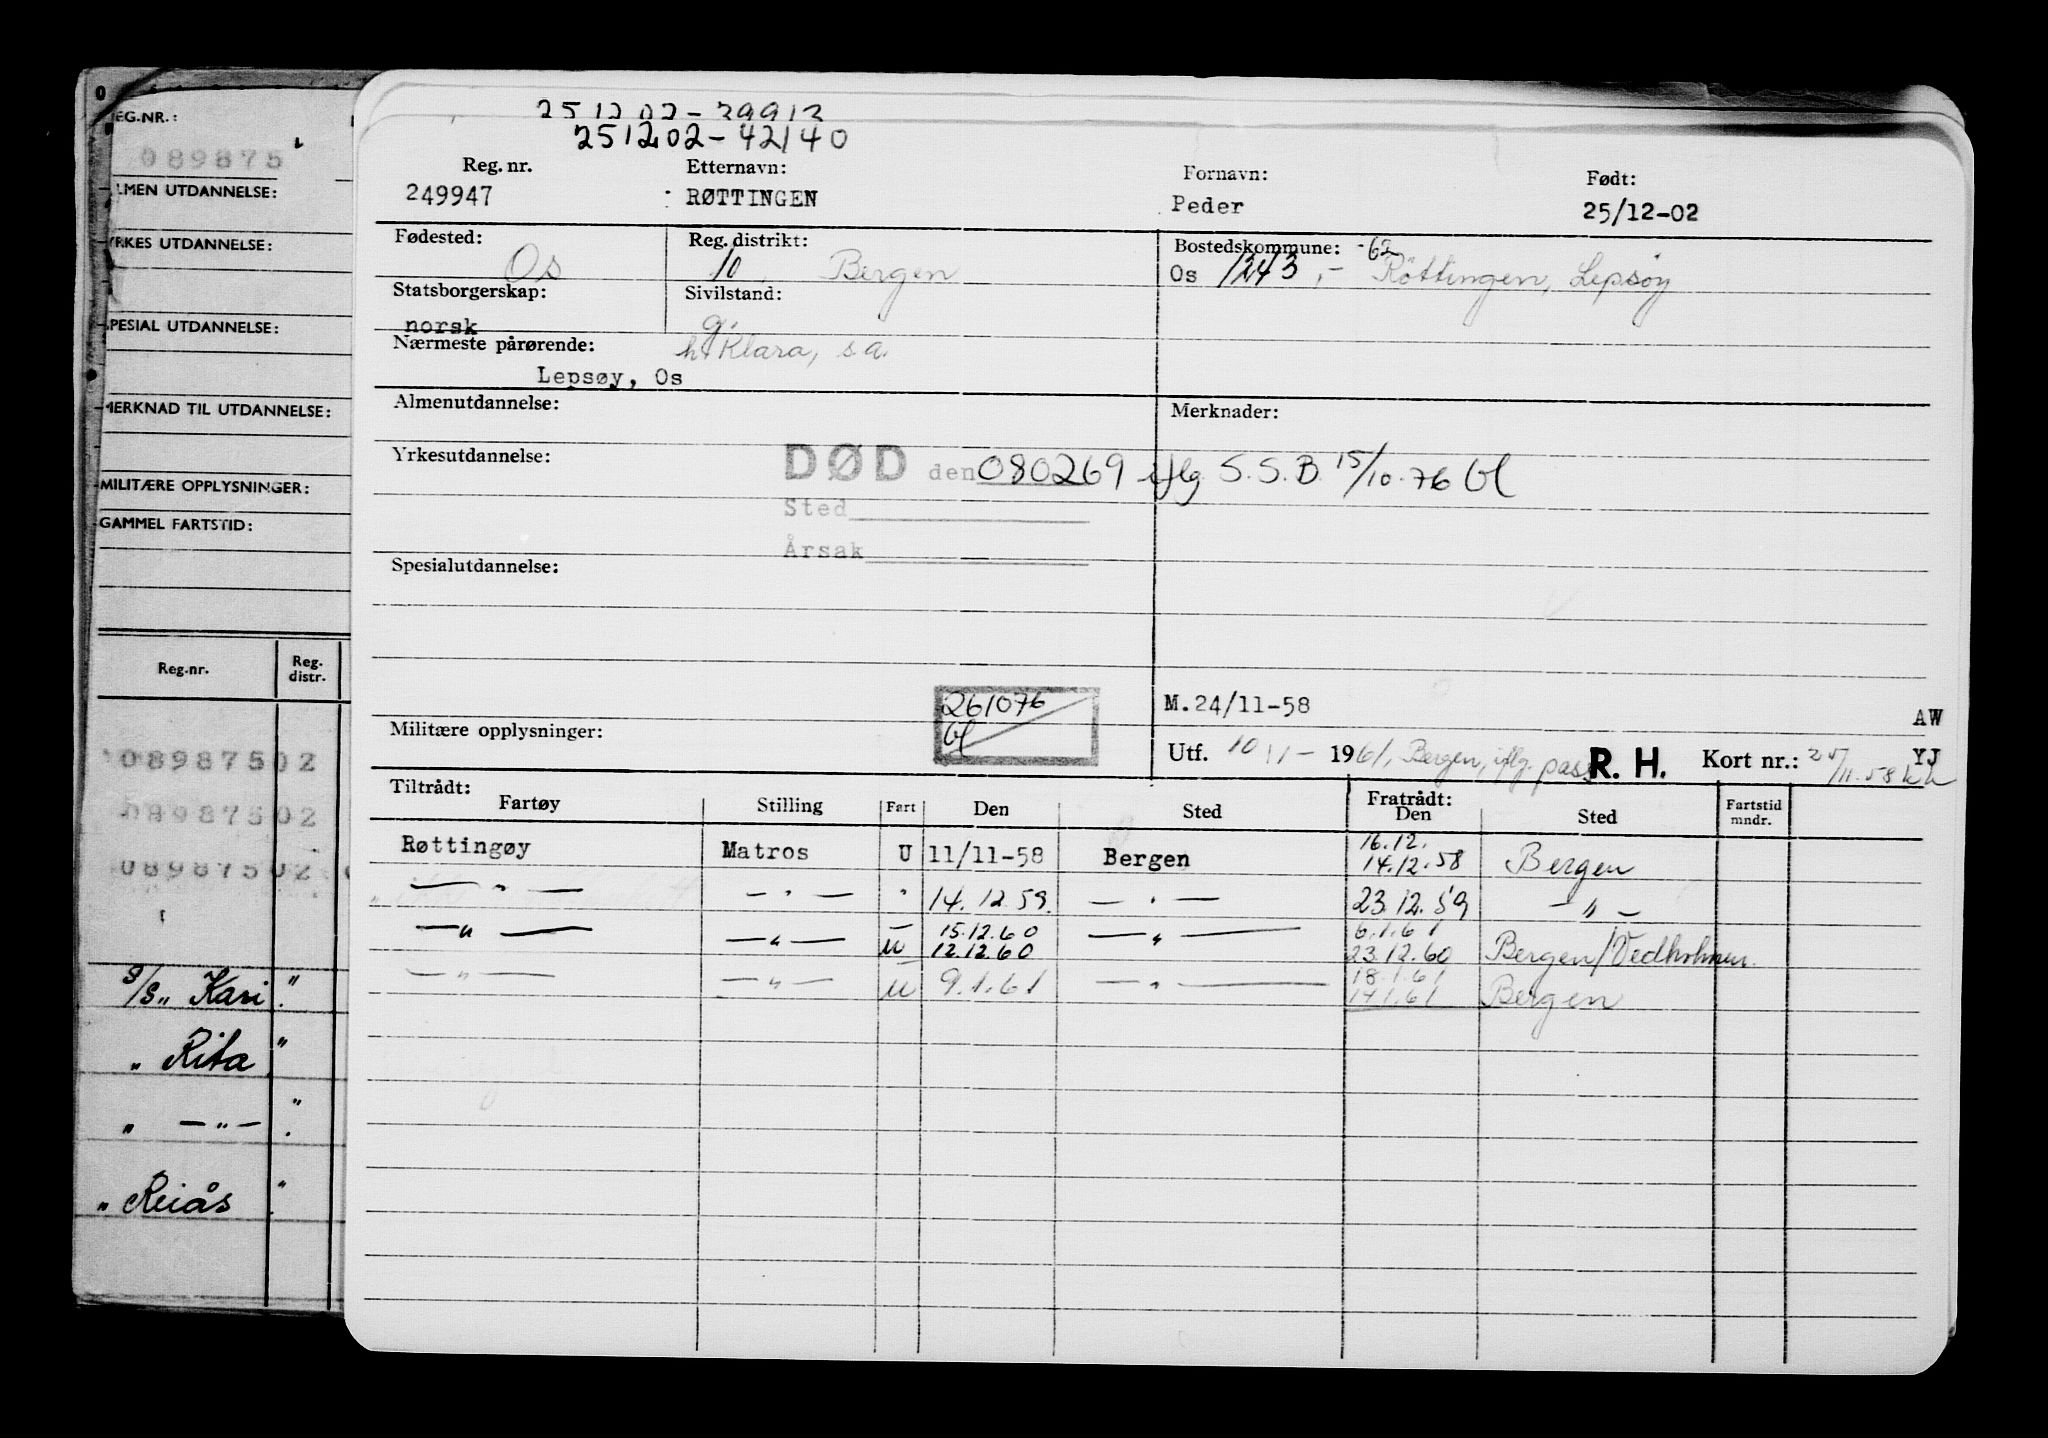 REG.NR.:
089875
ALMEN UTDANNELSE:
YRKES UTDANNELSE:
SPESIAL UTDANNELSE:
MERKNAD TIL UTDANNELSE:
MILITÆRE OPPLYSNINGER:
GAMMEL FARTSTID:
Reg.nr. Reg. distr.
08987502
08987502
08987502
S/S „ Kari "
„ Rita "
„ — „ — "
„ Reiås "
251202-39913
251202-42140
Reg. nr. Etternavn: Fornavn: Født:
249947 RØTTINGEN Peder 25/12-02
Fødested: Reg. distrikt: Bostedskommune: -62
Os 10, Bergen Os 1243,- Røttingen, Lepsøy
Statsborgerskap: Sivilstand:
norsk g.
Nærmeste pårørende: h. Klara, s.a.
Lepsøy, Os
Almenutdannelse: Merknader:
Yrkesutdannelse:
DØD den 080269 iflg. S.S.B. 15/10-76 bl
Sted
Årsak
Spesialutdannelse:
261076 M.24/11-58 AW
bl
Militære opplysninger: Utf. 10/1- 1961, Bergen, iflg. pass R. H. Kort nr.: YJ
25/11-58
Tiltrådt: Fratrådt:
Fartøy Stilling Fart Den Sted Den Sted Fartstid mndr.
16.12.
Røttingøy Matros U 11/11-58 Bergen 14.12.58 Bergen
— " — — " — " 14.12.59. — " — 23.12.59 — " —
15.12.60 6.1.61
— " — — " — u 12.12.60 — " — 23.12.60 Bergen/Vedholmen.
18.1.61
— " — — " — u 9.1.61 — " — 14.1.61 Bergen